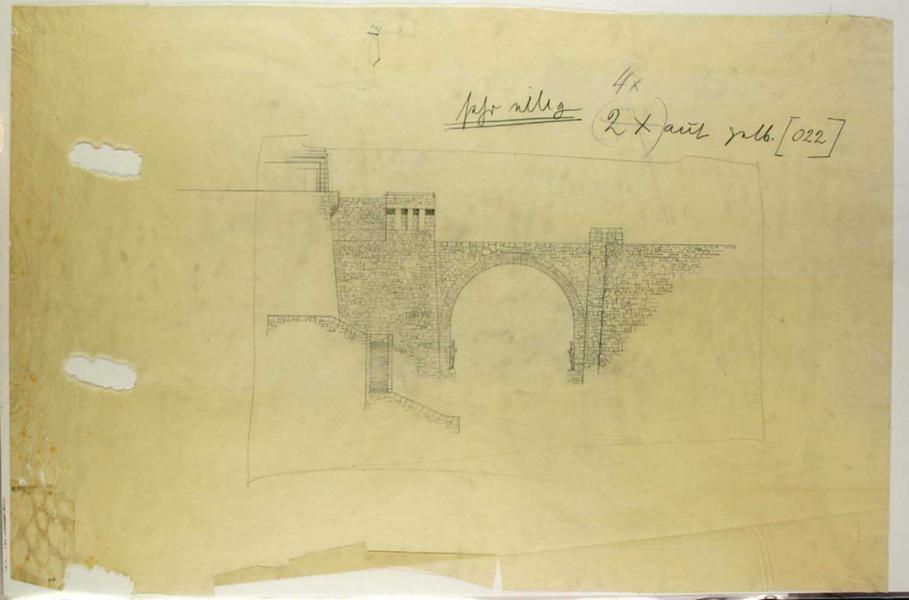 4x
sehr eilig
2 x auf gelb. [022]